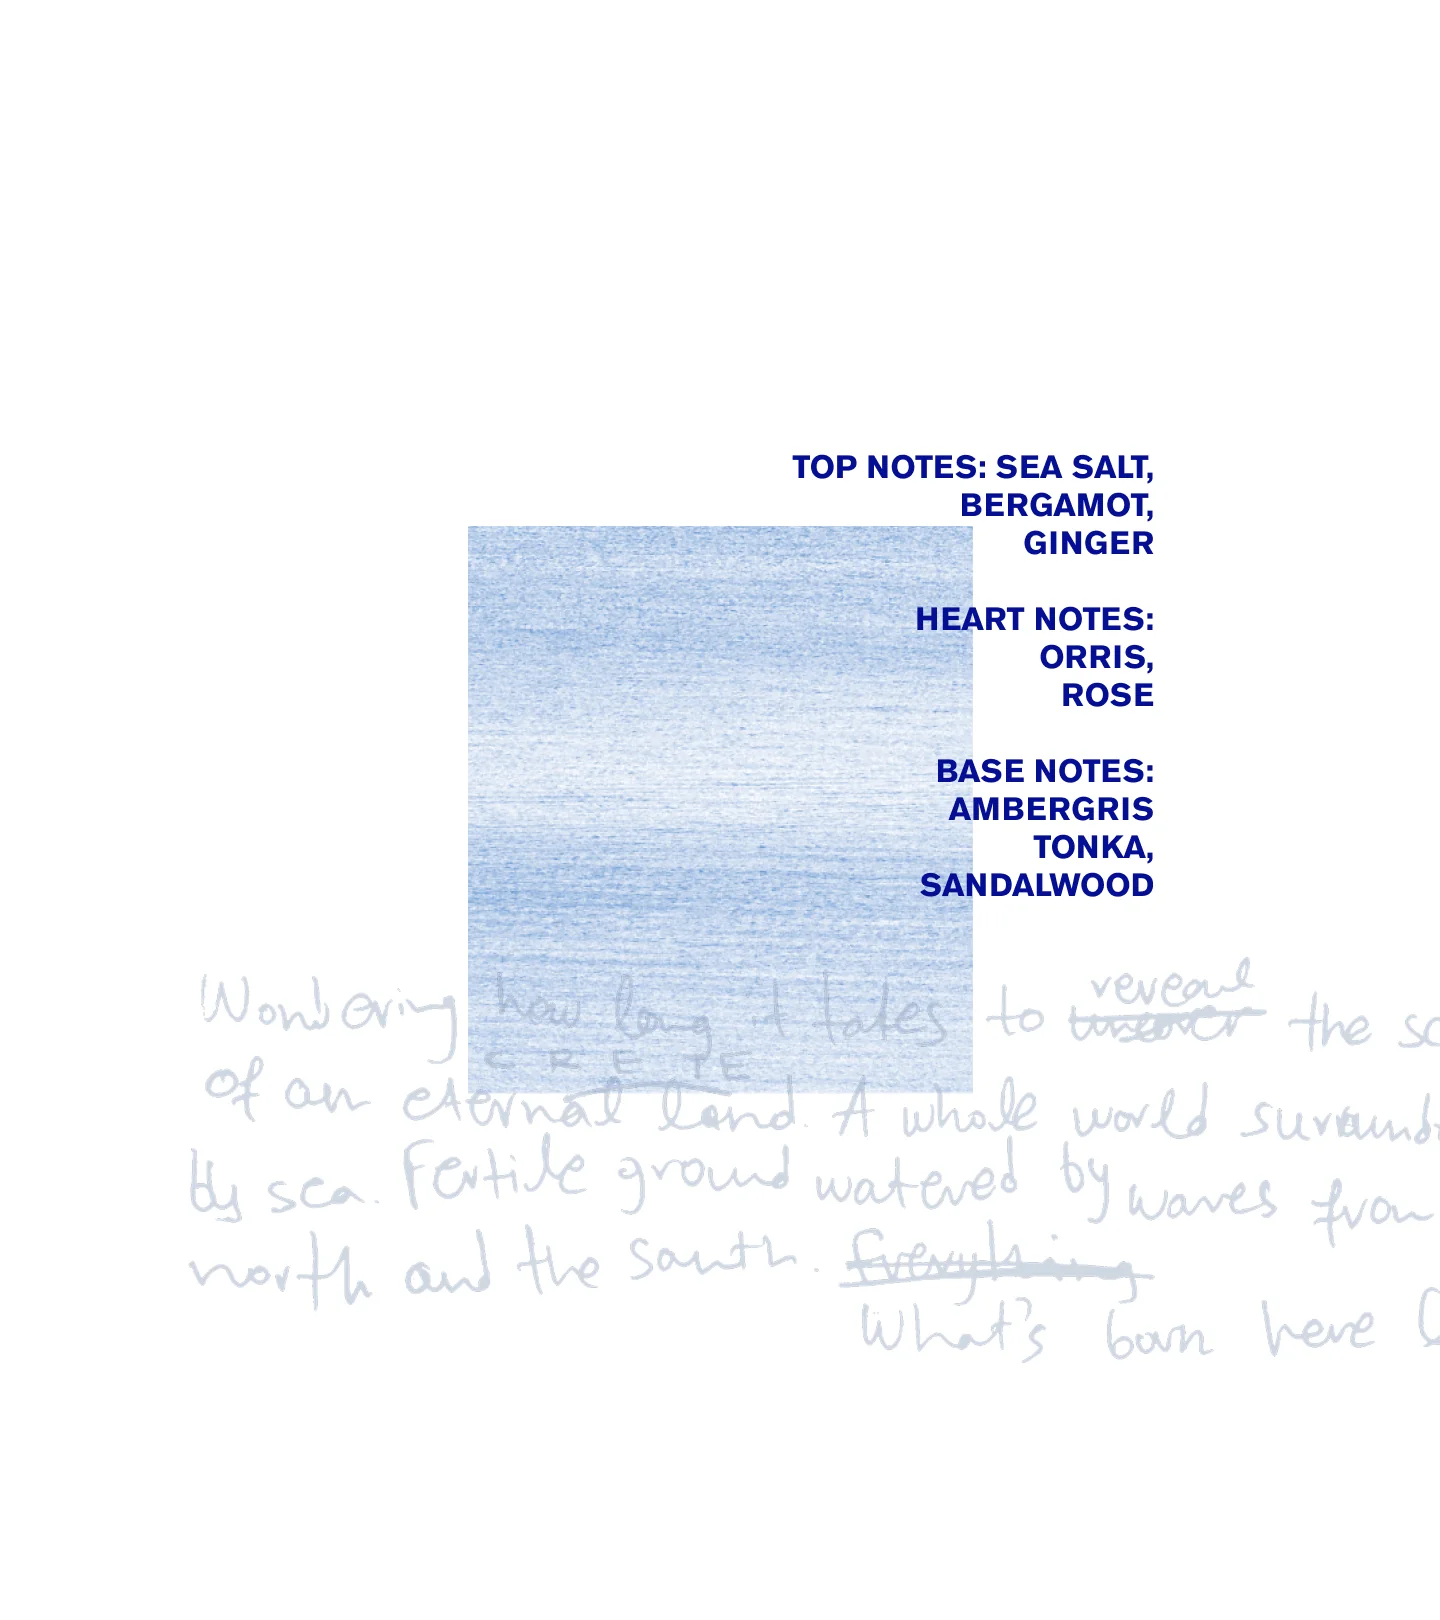 TOP NOTES: SEA SALT,
BERGAMOT,
GINGER
HEART NOTES:
ORRIS,
ROSE
BASE NOTES:
AMBERGRIS
TONKA,
SANDALWOOD
reveal
Wondering how long it takes to uncover the
CRETE
of an eternal land. A whole world
by sea. Fertile ground watered by waves from
north and the south. Everything
What's born here